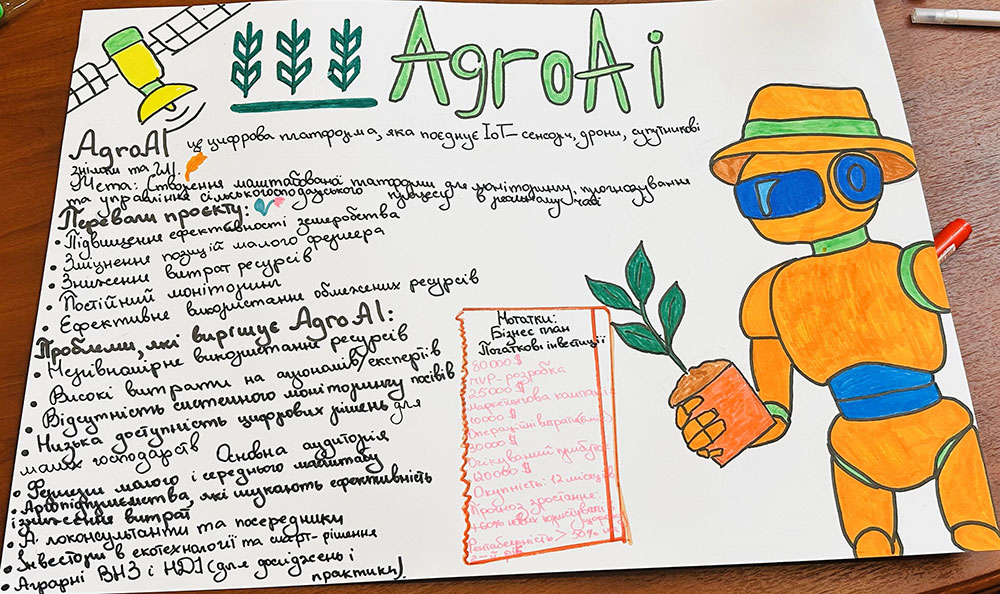 AgroAi
AgroAI це цифрова платформа, яка поєднує IoT-сенсори, дрони, супутникові
знімки та ШІ.
Мета: Створення маштабованої платформи для моніторингу, прогнозування
та управління сільськогосподарського процесу в реальному часі
Переваги проєкту:
• Підвищення ефективності землеробства
• Зміцнення позицій малого фермера
• Зниження витрат ресурсів
• Постійний моніторинг
• Ефективне використання обмежених ресурсів
Проблеми, які вирішує AgroAI:
• Нерівномірне використання ресурсів
• Високі витрати на агрономів/експертів
• Відсутність системного моніторингу посівів
• Низька доступність цифрових рішень для
малих господарств
Основна аудиторія
• Фермери малого і середнього маштабу
• Агропідприємства, які шукають ефективність
і зниження витрат
• Агроконсультанти та посередники
• Інвестори в екотехнології та смарт-рішення
• Аграрні ВНЗ і НДІ (для досліджень і
практики).
Нотатки:
Бізнес план
Початкові інвестиції
80000$
MVP-розробка
25000$
Маркетингова кампанія
10000$
Операційні витрати
30000$
Очікуваний прибуток
120000$
Окупність: 12 місяців
Прогноз зростання:
+60% нових користувачів
Рентабельність > 50%